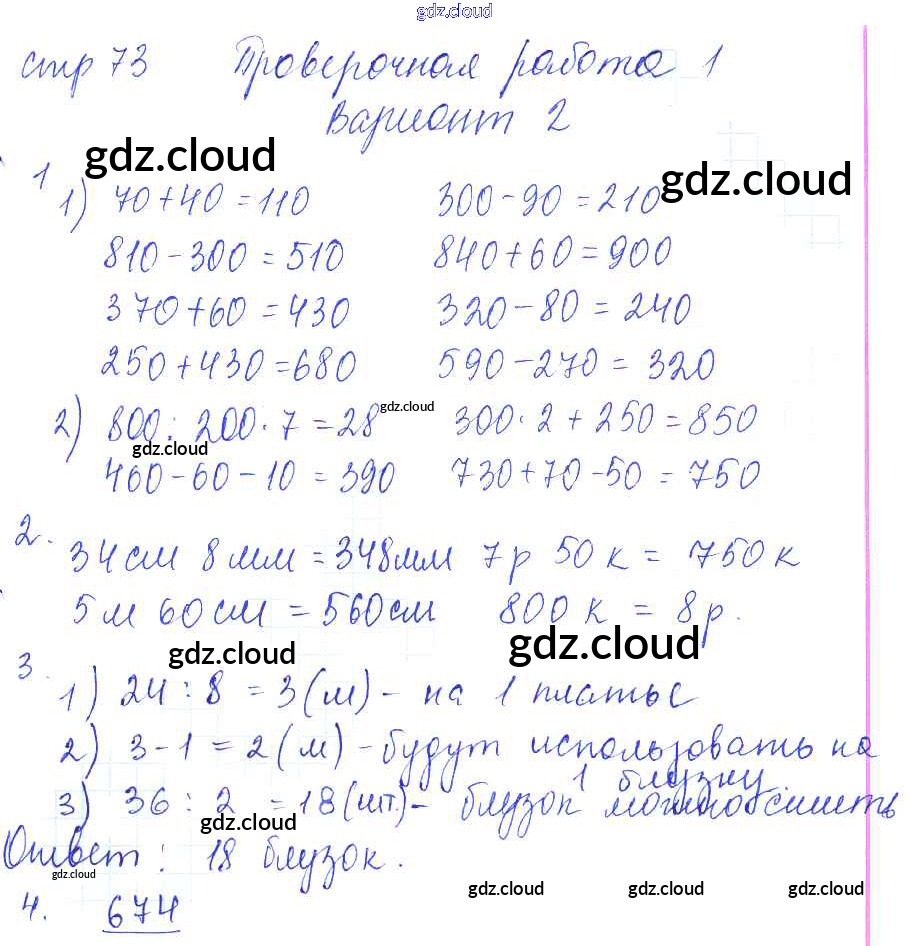 gdz.cloud
стр 73 Проверочная работа 1
Вариант 2
gdz.cloud
gdz.cloud
1
1) 70+40=110 300-90=210
810-300=510 840+60=900
370+60=430 320-80=240
250+430=680 590-270=320
gdz.cloud
2) 800:200·7=28 300·2+250=850
gdz.cloud
460-60-10=390 730+70-50=750
2.
34см 8мм=348мм 7р 50к=750к
5м 60см=560см 800к=8р.
gdz.cloud
gdz.cloud
3.
1) 24:8=3(м)- на 1 платье
2) 3-1=2(м)-будут использовать на
1 блузку.
3) 36:2=18(шт.)- блузок можно сшить
gdz.cloud
Ответ: 18 блузок.
gdz.cloud
gdz.cloud
gdz.cloud
4. 674